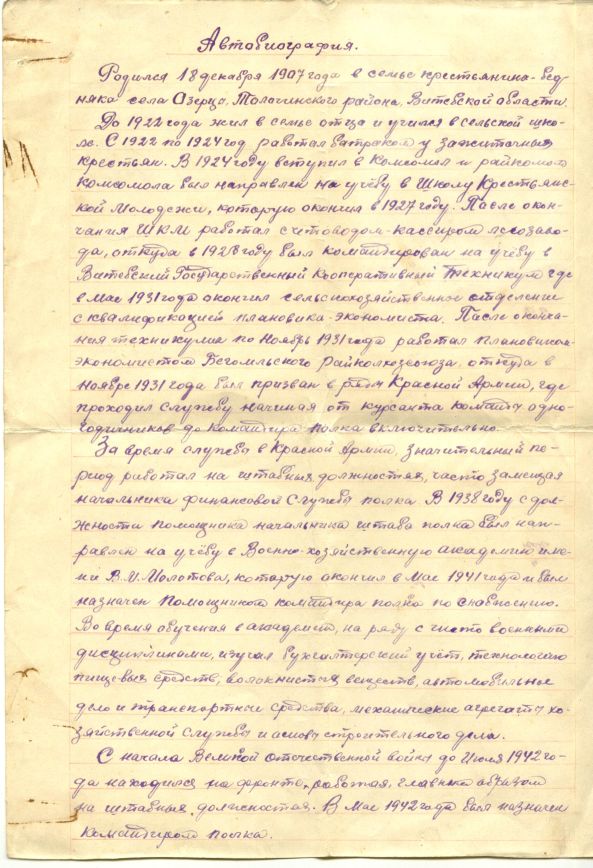 Автобиография.
Родился 18 декабря 1907 года в семье крестьянина-бед-
няка села Озерцо, Толочинского района, Витебской области.
До 1922 года жил в семье отца и учился в сельской шко-
ле. С 1922 по 1924 год работал батраком у зажиточных
крестьян. В 1924 году вступил в Комсомол и райкомом
комсомола был направлен на учёбу в Школу Крестьянс-
кой Молодежи, которую окончил в 1927 году. После окон-
чания ШКМ работал счетоводом-кассиром лесозаво-
да, откуда в 1928 году был командирован на учёбу в
Витебский Государственный Кооперативный Техникум где
в Мае 1931 года окончил сельскохозяйственное отделение
с квалификацией плановика-экономиста. После оконча-
ния техникума по Ноябрь 1931 года работал плановиком-
экономистом Бегомльского Райколхозсоюза, откуда в
Ноябре 1931 года был призван в ряды Красной Армии, где
проходил службу начиная от курсанта команды одно-
годичников до командира полка включительно.
За время службы в Красной Армии, значительный пе-
риод работал на штабных должностях, часто замещая
начальника финансовой службы полка. В 1938 году с дол-
жности помощника начальника штаба полка был нап-
равлен на учёбу в Военно-хозяйственную академию име-
ни В.М. Молотова, которую окончил в Мае 1941 года и был
назначен Помощником командира полка по снабжению.
Во время обучения в академии, на ряду с чисто военными
дисциплинами, изучал бухгалтерский учёт, технологию
пищевых средств, волокнистых веществ, автомобильное
дело и транспортные средства, механические агрегаты хо-
зяйственной службы и основы строительного дела.
С начала Великой отечественной войны до Июля 1942 го-
да находился на фронте, работая, главным образом
на штабных должностях. В Мае 1942 года был назначен
командиром полка.